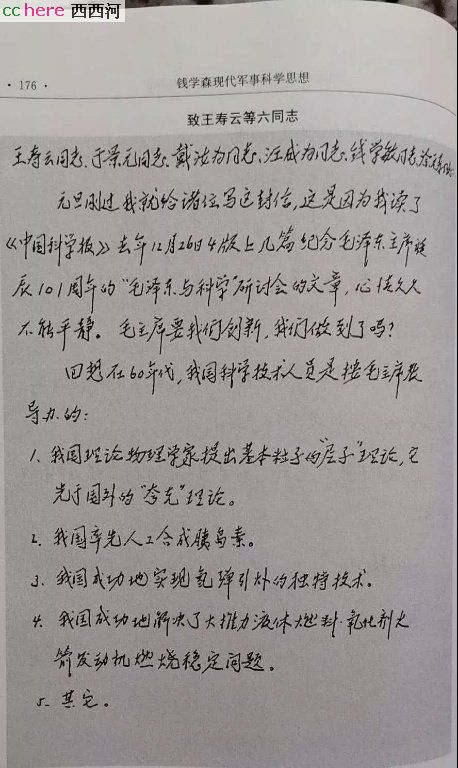 cchere 西西河
· 176 · 钱学森现代军事科学思想
致王寿云等六同志
王寿云同志、于景元同志、戴汝为同志、汪成为同志、钱学敏同志、涂元季同志:
元旦刚过我就给诸位写这封信,这是因为我读了
《中国科学报》去年12月26日4版上几篇纪念毛泽东主席诞
辰101周年的“毛泽东与科学”研讨会的文章,心情久久
不能平静。毛主席要我们创新,我们做到了吗?
回想在60年代,我国科学技术人员是按毛主席教
导办的:
1. 我国理论物理学家提出基本粒子的“层子”理论,它
先于国外的“夸克”理论。
2. 我国率先人工合成胰岛素。
3. 我国成功地实现氢弹引爆的独特技术。
4. 我国成功地解决了大推力液体燃料氧化剂火
箭发动机燃烧稳定问题。
5. 其它。